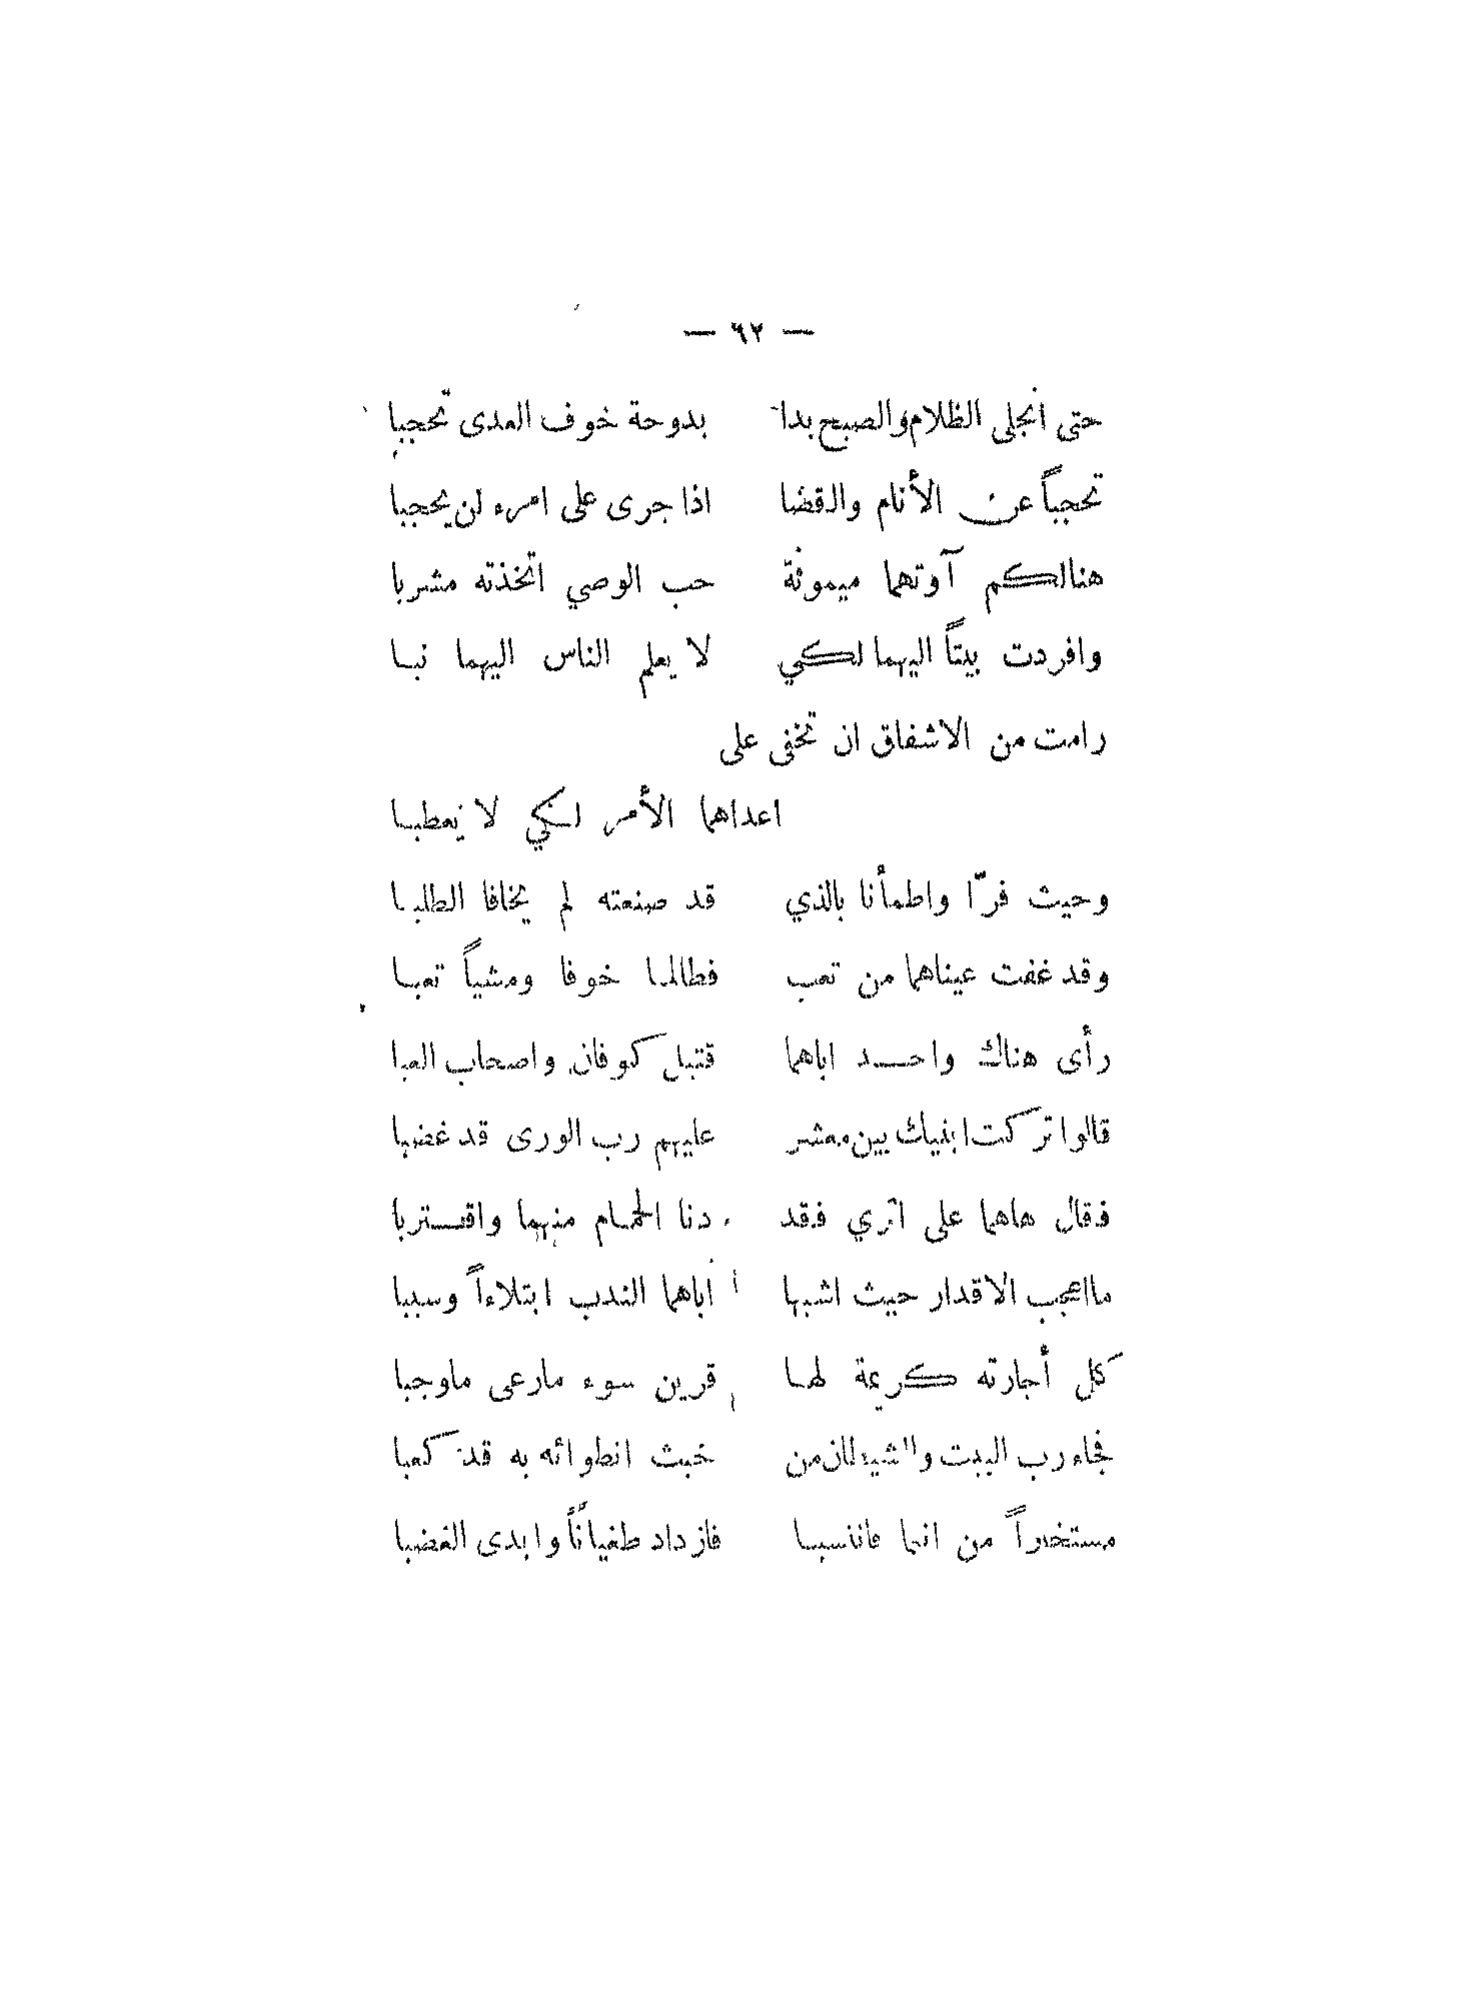 — ٦٢ —
حتى انجلى الظلام والصبح بدا بدوحة خوف العدى تحجبا
تحجباً عن الأنام والقضا اذا جرى على امرء لن يحجبا
هنالكم آوتهما ميمونة حب الوصي اتخذته مشربا
وافردت بيتاً اليهما لكي لا يعلم الناس اليهما نبا
رامت من الاشفاق ان تخفى على
اعداهما الأمر لكي لا يعطبا
وحيث فرّا واطمأنا بالذي قد صنعته لم يخافا الطلبا
وقد غفت عيناهما من تعب فطالما خوفا ومشياً تعبا
رأى هناك واحد اباهما قتيل كوفان واصحاب العبا
قالوا تركت ابنيك بين معشر عليهم رب الورى قد غضبا
فقال هاهما على اثري فقد دنا الحمام منهما واقتربا
ما اعجب الاقدار حيث اشبها اباهما الندب ابتلاءاً وسببا
كل أجارته كريمة لها قرين سوء مارعى ماوجبا
فجاء رب البيت والشيطان من خبث انطوائه به قد كعبا
مستخبراً من انتما فانتسبا فازداد طغياناً وابدى الغضبا